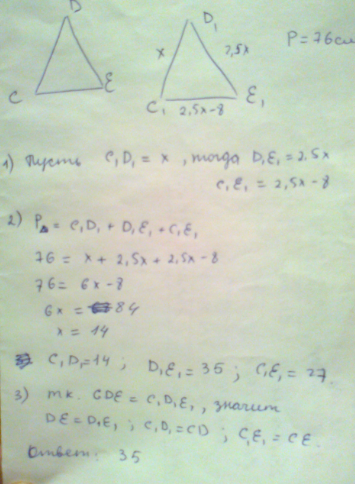 D
D₁
P=76см
x
2,5x
C
E
C₁
E₁
2,5x-8
1) Пусть C₁D₁ = x, тогда D₁E₁ = 2,5x
C₁E₁ = 2,5x-8
2) P△ = C₁D₁ + D₁E₁ + C₁E₁
76 = x + 2,5x + 2,5x-8
76 = 6x-8
6x = 84
x = 14
C₁D₁=14; D₁E₁ = 35; C₁E₁ = 27.
3) т.к. CDE = C₁D₁E₁, значит
DE = D₁E₁; C₁D₁ = CD; C₁E₁ = CE.
Ответ: 35